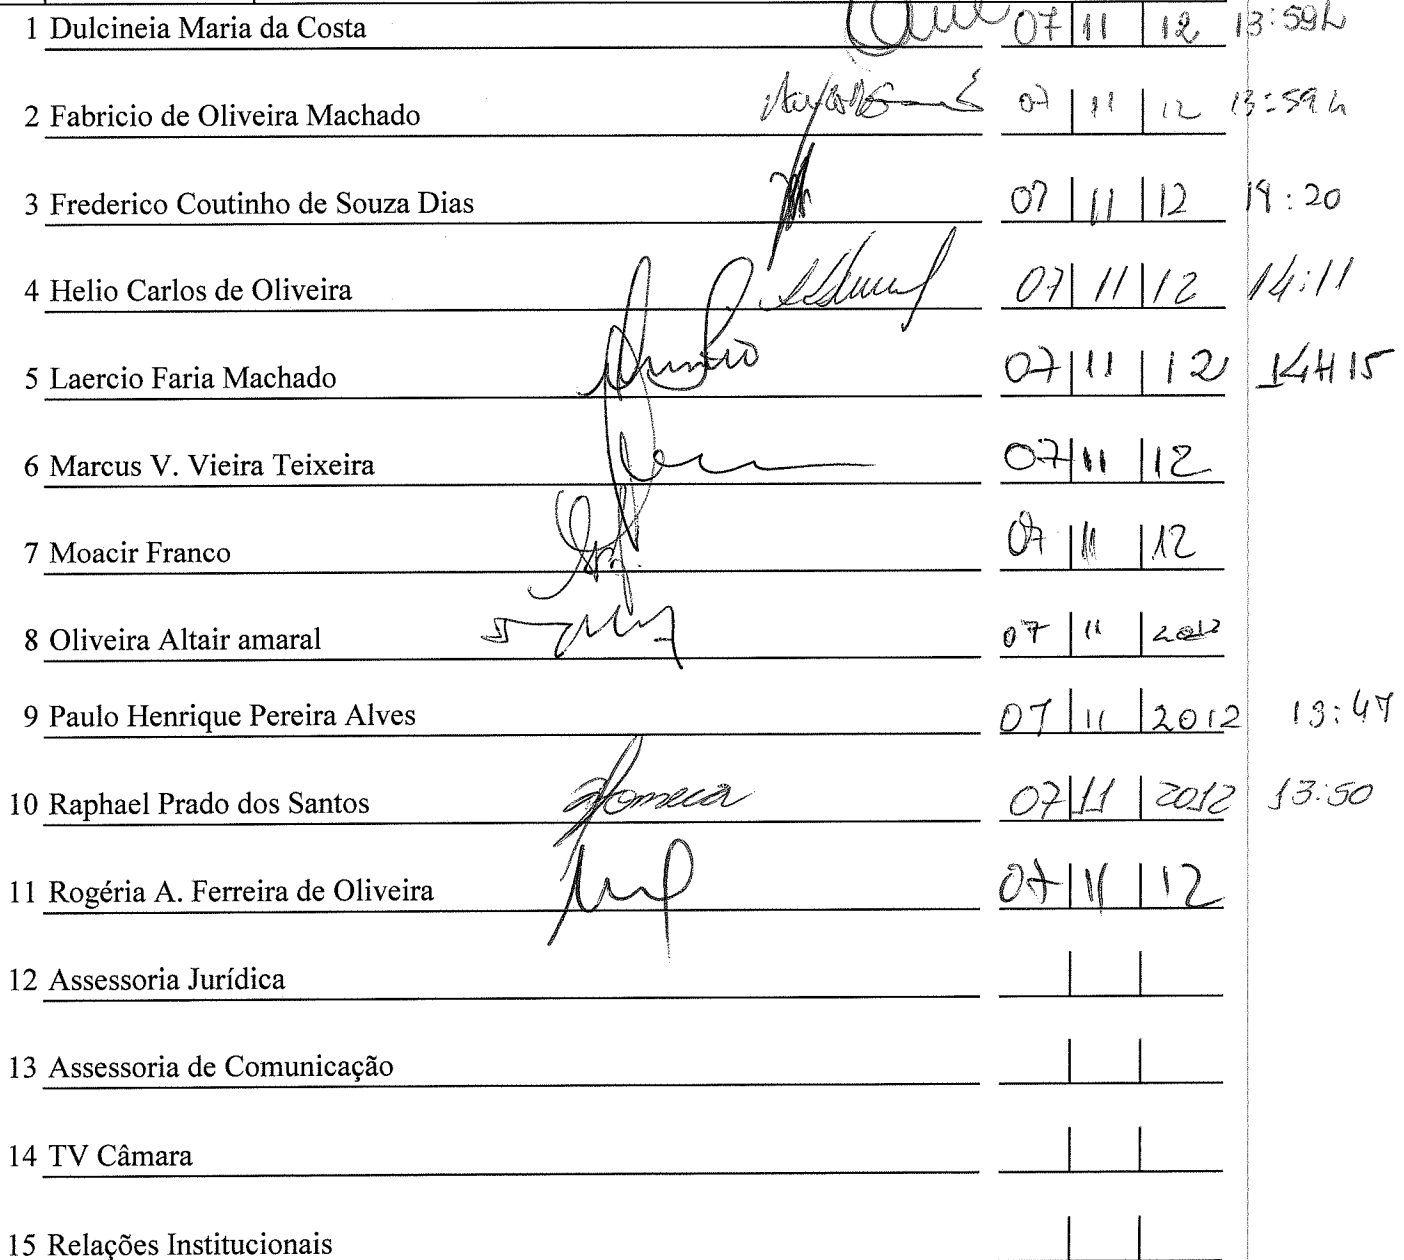 1 Dulcineia Maria da Costa 07 11 12 13:59h
2 Fabricio de Oliveira Machado 07 11 12 13:59h
3 Frederico Coutinho de Souza Dias 07 11 12 :20
4 Helio Carlos de Oliveira 07 11 12 14:11
5 Laercio Faria Machado 07 11 12 14H15
6 Marcus V. Vieira Teixeira 07 11 12
7 Moacir Franco 07 11 12
8 Oliveira Altair amaral 07 11 2012
9 Paulo Henrique Pereira Alves 07 11 2012 13:47
10 Raphael Prado dos Santos 07 11 2012 13:50
11 Rogéria A. Ferreira de Oliveira 07 11 12
12 Assessoria Jurídica
13 Assessoria de Comunicação
14 TV Câmara
15 Relações Institucionais